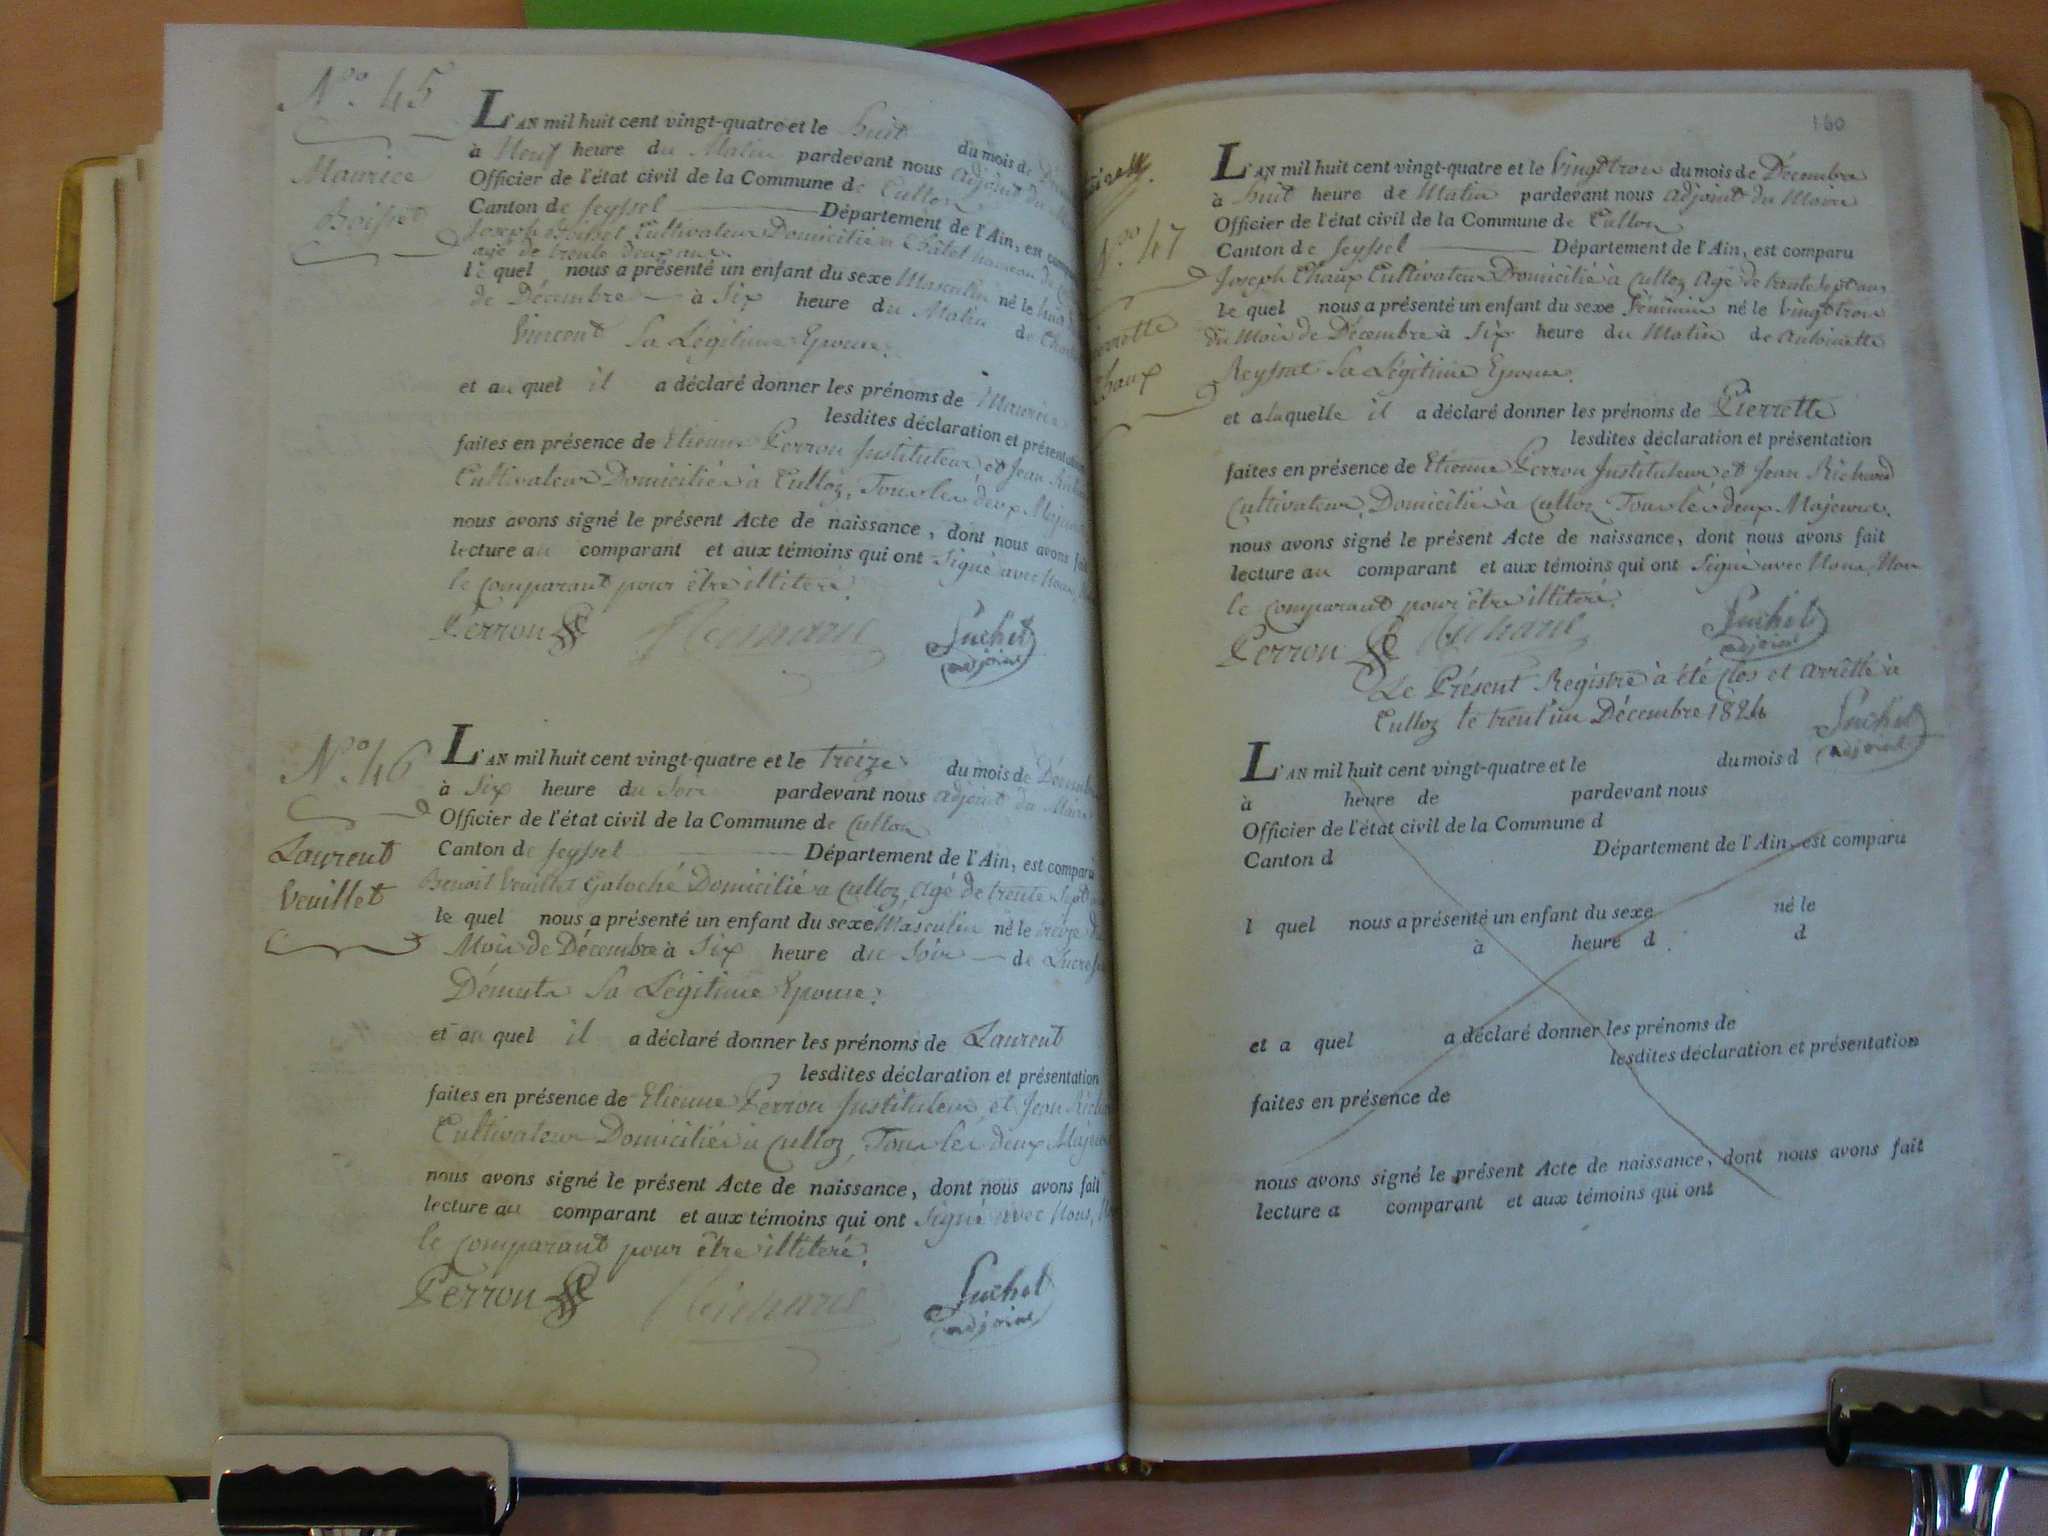 N.º 45
Maurice
Boisset
L'AN mil huit cent vingt-quatre et le huit du mois de
à Neuf heure du Matin pardevant nous adjoint du
Officier de l'état civil de la Commune de Culloz
Canton de Seyssel Département de l'Ain, est comparu
Joseph Boisset Cultivateur Domicilié a Châtel hameau de
agé de trente deux ans
le quel nous a présenté un enfant du sexe Masculin né le huit
de Décembre à Six heure du Matin de
Vincent Sa Légitime Epouse.
et au quel il a déclaré donner les prénoms de Maurice
lesdites déclaration et présentation
faites en présence de Etienne Perron Instituteur et Jean Richard
Cultivateur Domiciliés à Culloz, Tous les deux Majeurs
nous avons signé le présent Acte de naissance, dont nous avons fait
lecture au comparant et aux témoins qui ont Signé avec Nous,
le comparant pour être illitéré.
Perron Richard Suchet
adjoint
N.º 46
Laurent
Veuillet
L'AN mil huit cent vingt-quatre et le treize du mois de Décembre
à Six heure du Soir pardevant nous adjoint du Maire
Officier de l'état civil de la Commune de Culloz
Canton de Seyssel Département de l'Ain, est comparu
Benoit Veuillet Galoché Domicilié a Culloz, Agé de trente Sept
le quel nous a présenté un enfant du sexe Masculin né le treize du
Mois de Décembre à Six heure du Soir de
Sa Légitime Epouse.
et au quel il a déclaré donner les prénoms de Laurent
lesdites déclaration et présentation
faites en présence de Etienne Perron Instituteur, et Jean Richard
Cultivateur Domiciliés à Culloz, Tous les deux Majeurs
nous avons signé le présent Acte de naissance, dont nous avons fait
lecture au comparant et aux témoins qui ont Signé avec Nous,
le comparant pour être illitéré.
Perron Richard Suchet
adjoint
160
N.º 47
Pierrette
Chaux
L'AN mil huit cent vingt-quatre et le Vingt trois du mois de Décembre
à huit heure de Matin pardevant nous adjoint du Maire
Officier de l'état civil de la Commune de Culloz
Canton de Seyssel Département de l'Ain, est comparu
Joseph Chaux Cultivateur Domicilié à Culloz Agé de trente Sept ans
le quel nous a présenté un enfant du sexe Féminin né le Vingt trois
du Mois de Décembre à Six heure du Matin de Antoinette
Reyssat Sa Légitime Epouse.
et a laquelle il a déclaré donner les prénoms de Pierrette
lesdites déclaration et présentation
faites en présence de Etienne Perron Instituteur et Jean Richard
Cultivateur, Domiciliés à Culloz Tous les deux Majeurs.
nous avons signé le présent Acte de naissance, dont nous avons fait
lecture au comparant et aux témoins qui ont Signé avec Nous, Non
le comparant pour être illitéré.
Perron Richard Suchet
adjoint
Le Présent Registre à été Clos et arrêtté à
Culloz le trent'un Décembre 1824 Suchet
adjoint
L'AN mil huit cent vingt-quatre et le du mois d
à heure de pardevant nous
Officier de l'état civil de la Commune d
Canton d Département de l'Ain, est comparu
l quel nous a présenté un enfant du sexe né le
à heure d d
et a quel a déclaré donner les prénoms de
lesdites déclaration et présentation
faites en présence de
nous avons signé le présent Acte de naissance, dont nous avons fait
lecture a comparant et aux témoins qui ont